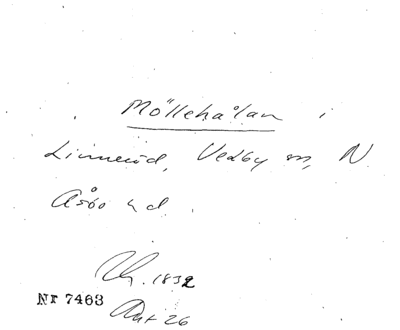 Möllehålan i
Linneröd, Vedby sn, N
Åsbo hd.
Uh. 1832
Nr 7463
Akt 26